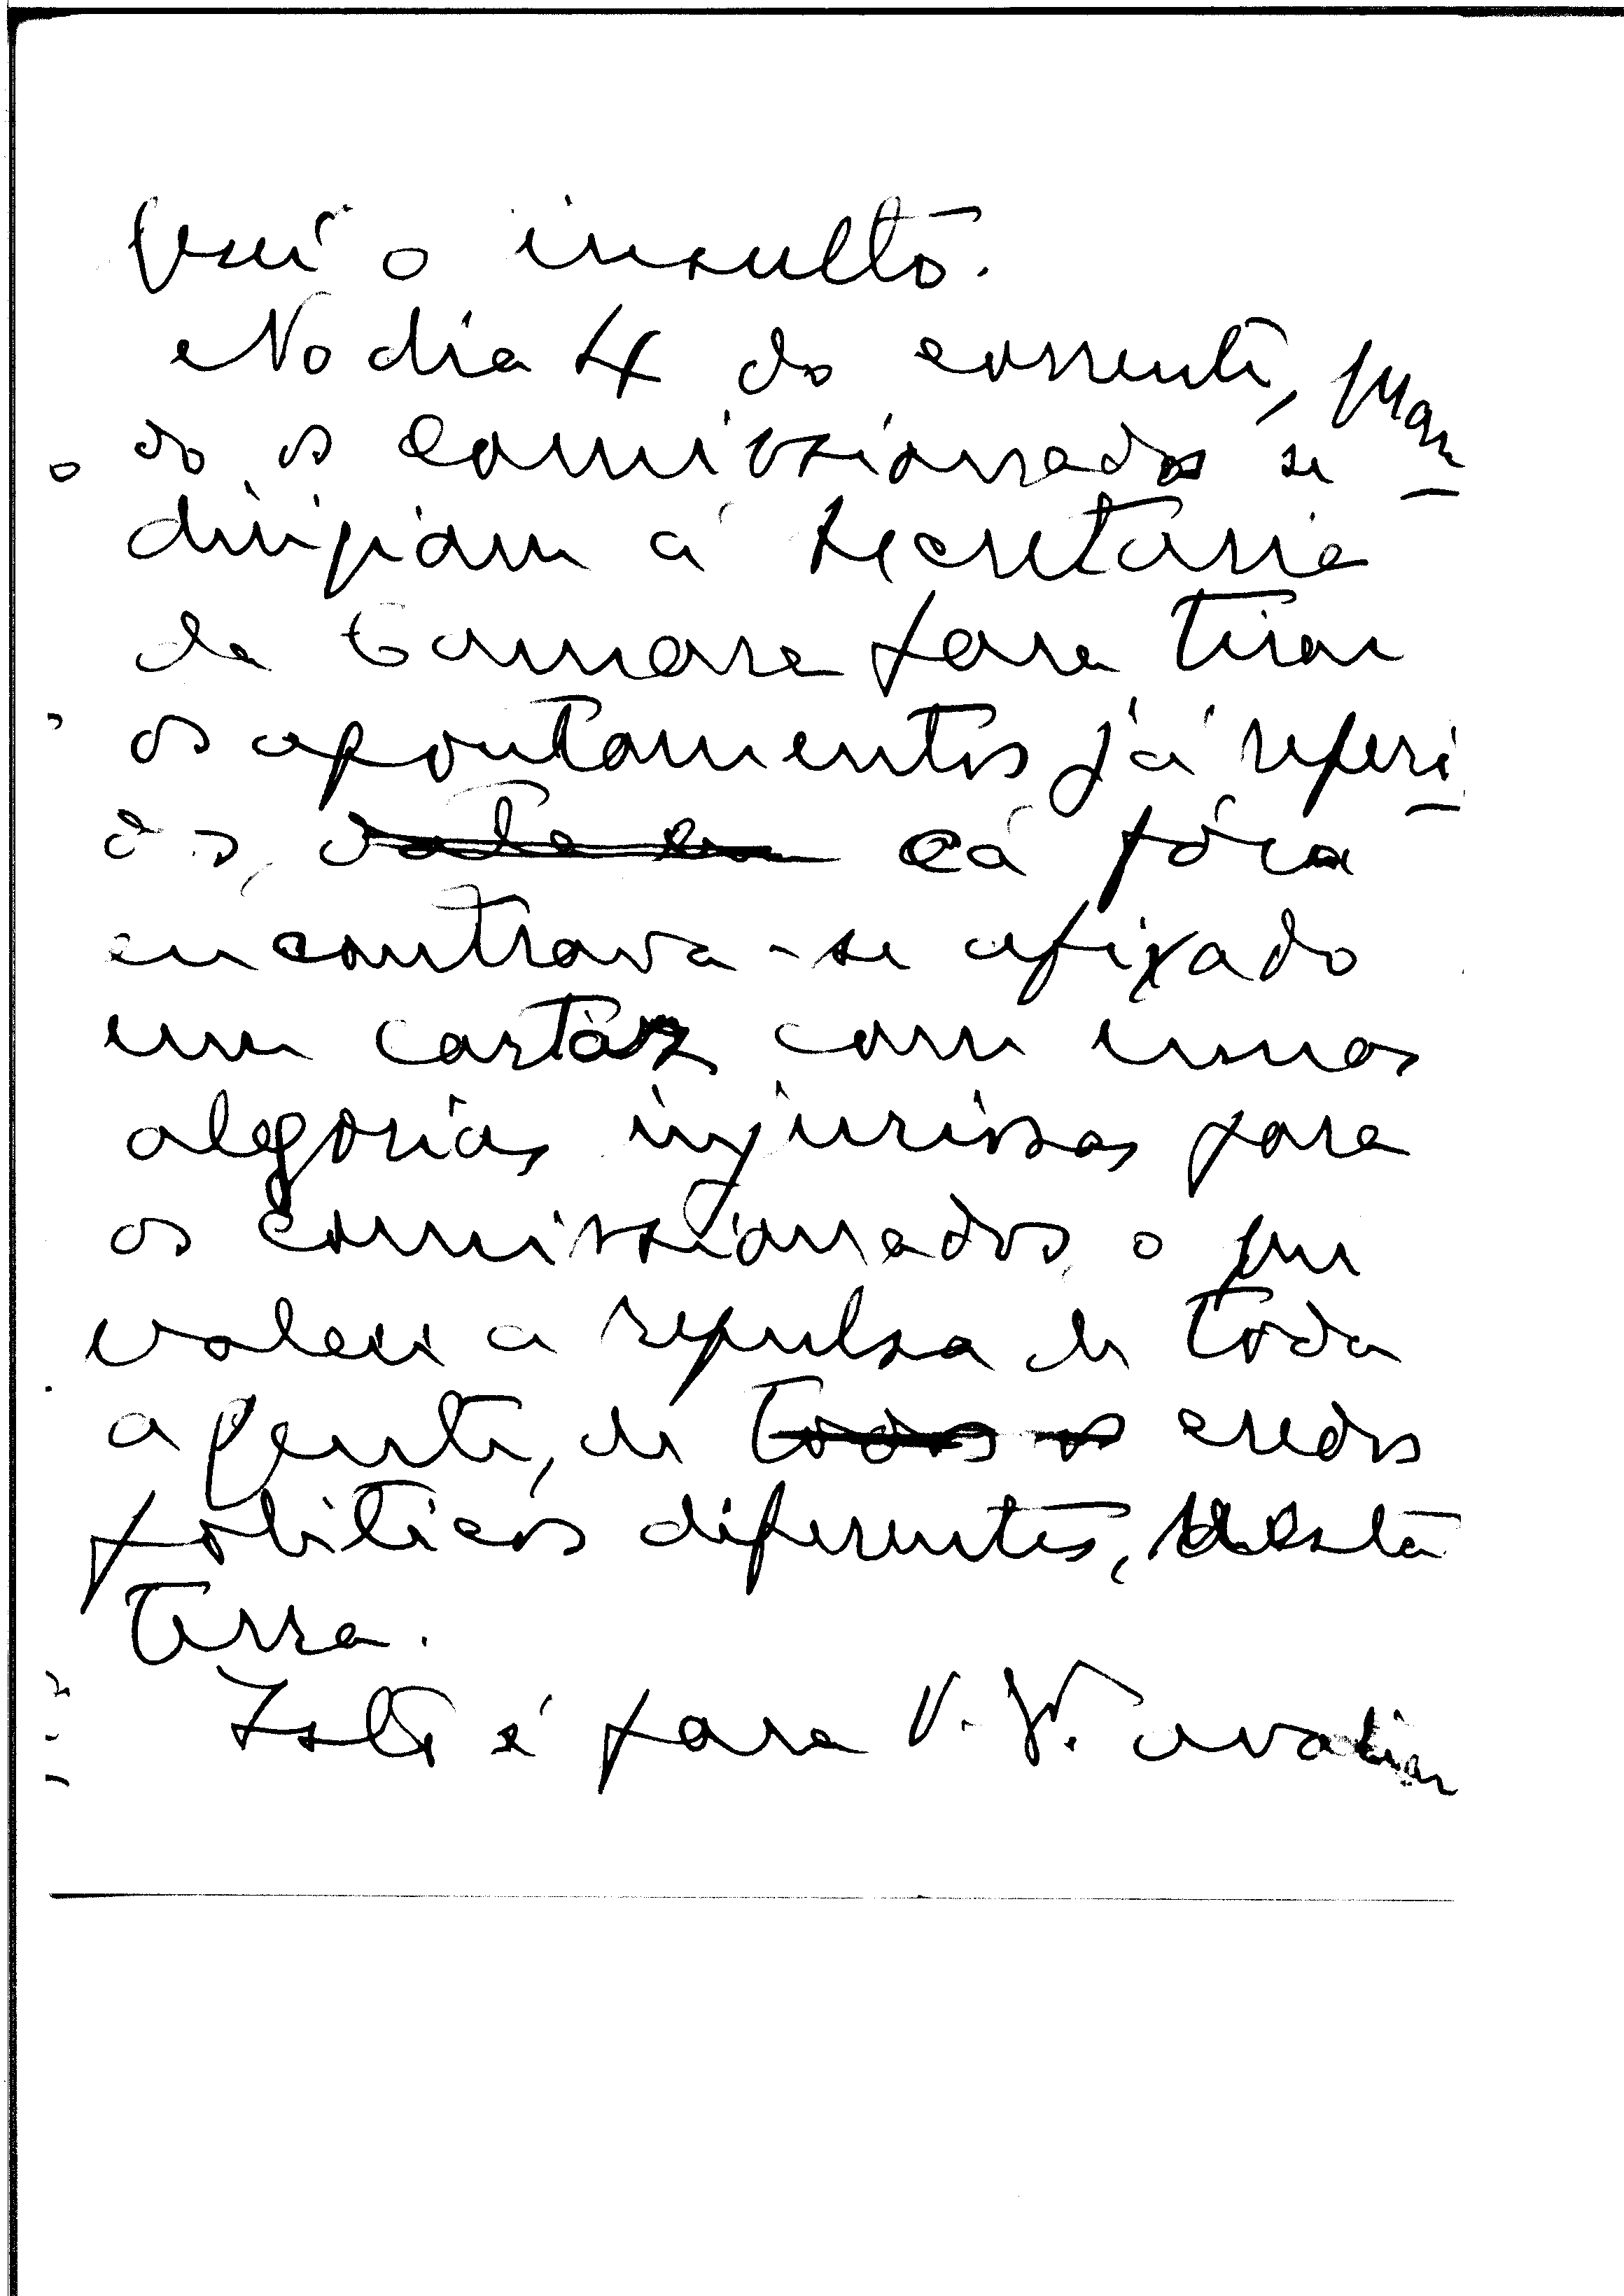 o insulto.
No dia 4 do corrente, quan-
do os comissionados se
dirigiam á secretaria
da Camara para tirar
os apontamentos já referi-
dos, cá fóra
encontrava-se afixado
um cartáz com umas
alegorias injuriosas para
os comissionados, o que
valeu a repulsa de toda
a gente, de todos os credos
politicos diferentes, desta
terra.
Isto é para V. avaliar